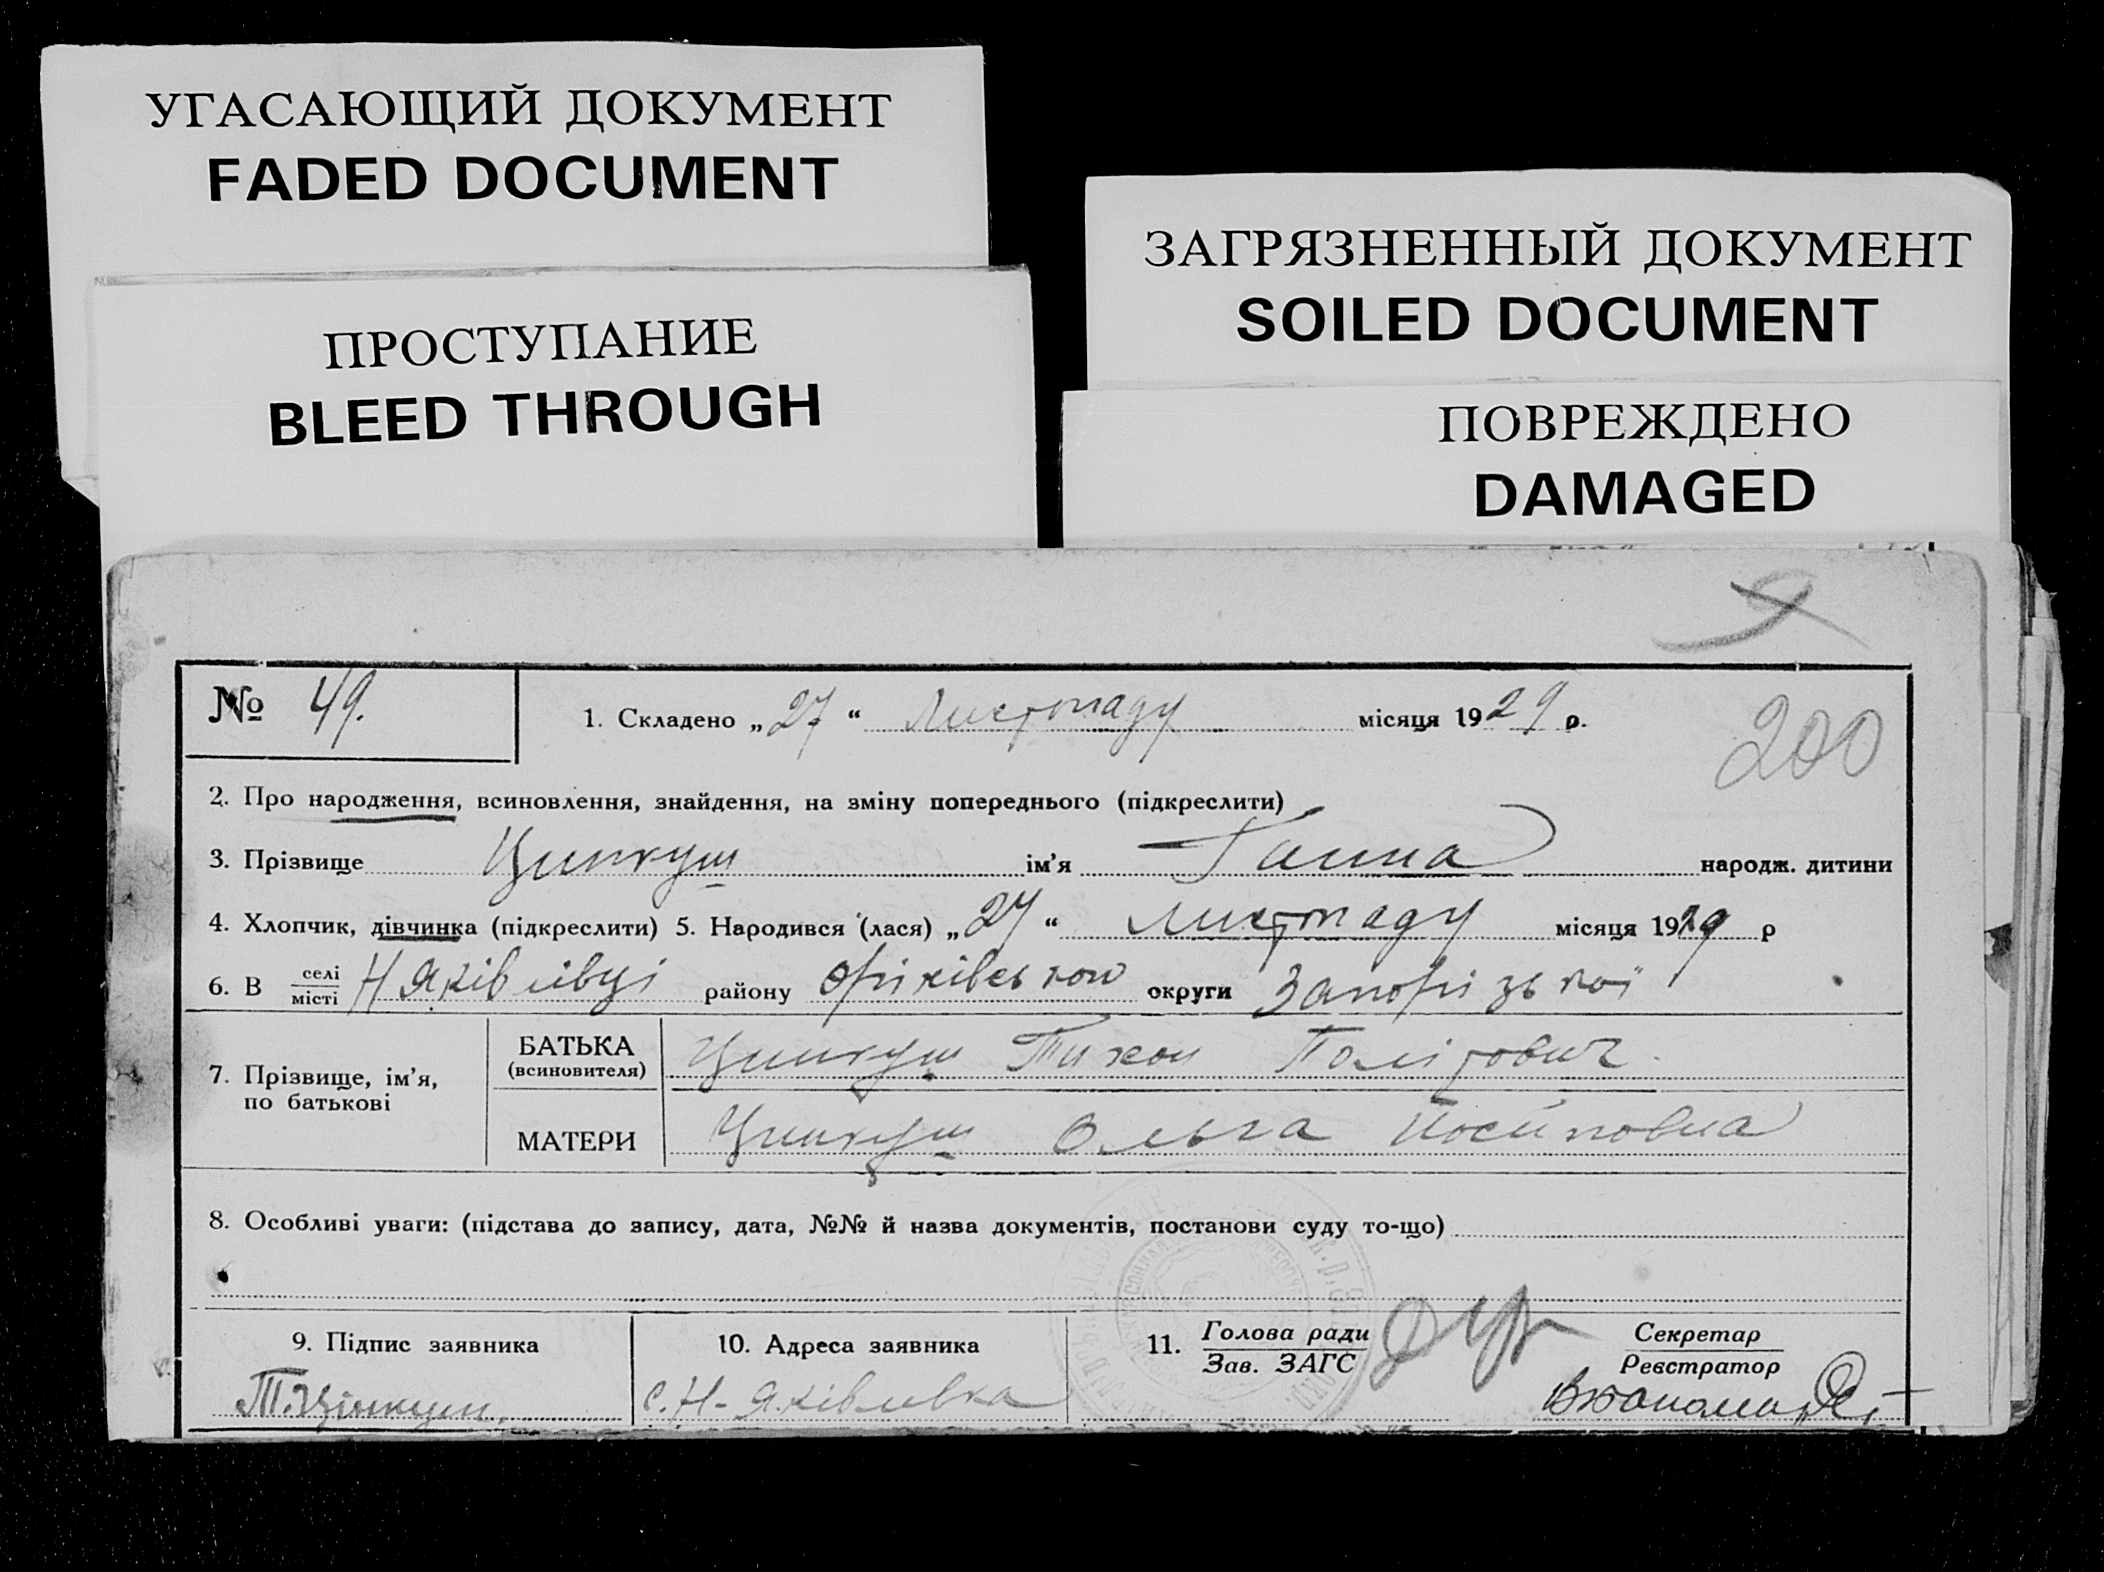 УГАСАЮЩИЙ ДОКУМЕНТ
FADED DOCUMENT
ПРОСТУПАНИЕ
BLEED THROUGH
ЗАГРЯЗНЕННЫЙ ДОКУМЕНТ
SOILED DOCUMENT
ПОВРЕЖДЕНО
DAMAGED
№ 49.
1. Складено „27“ Листопаду місяця 1929 р.
200
2. Про народження, всиновлення, знайдення, на зміну попереднього (підкреслити)
3. Прізвище Цинкуш ім’я Ганна народж. дитини
4. Хлопчик, дівчинка (підкреслити) 5. Народився (лася) „27“ листопаду місяця 1929 р
6. В селі/місті Н Яківлівці району Оріхівськом округи Запорізької
7. Прізвище, ім’я, по батькові
БАТЬКА (всиновителя) Цинкуш Тихон
МАТЕРИ Цинкуш Ольга Йосиповна
8. Особливі уваги: (підстава до запису, дата, №№ й назва документів, постанови суду то-що)
9. Підпис заявника
Т. Цінкуш
10. Адреса заявника
с. Н-Яківлевка
11. Голова ради
Зав. ЗАГС
Секретар
Реєстратор